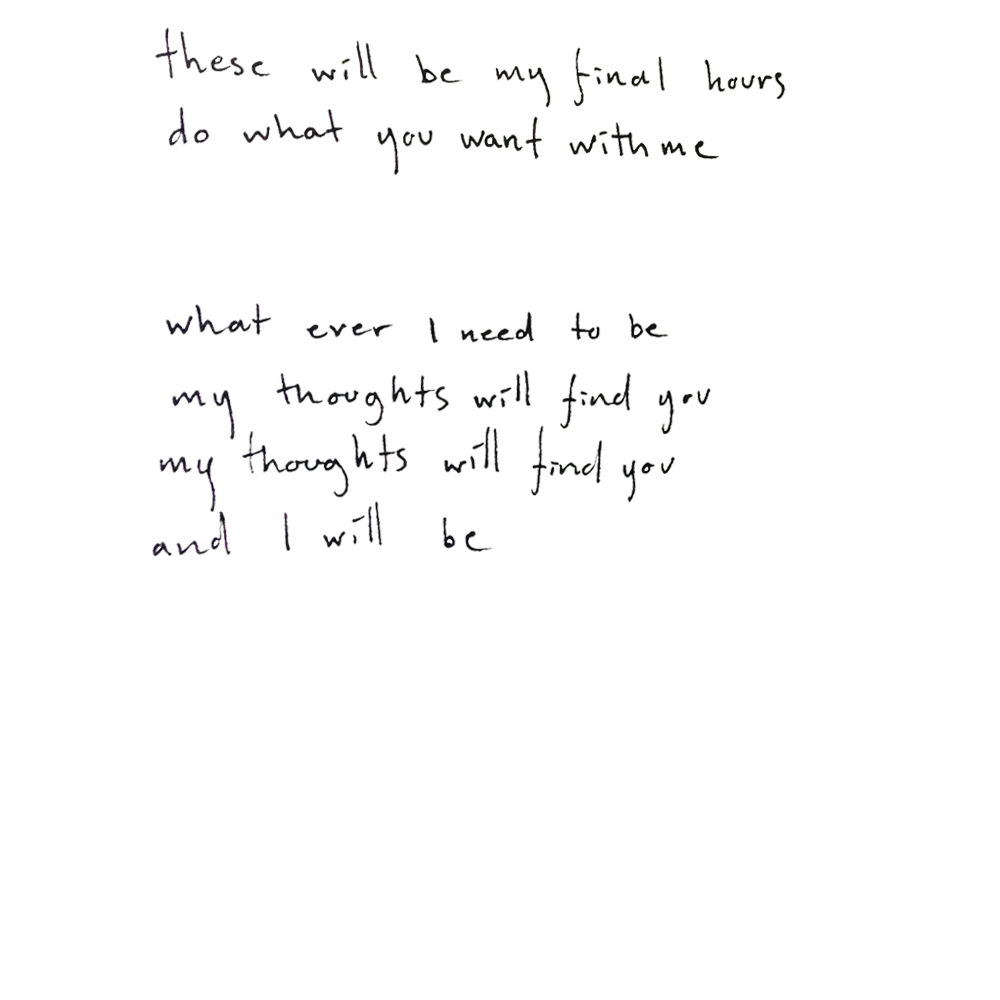 these will be my final hours
do what you want with me
what ever I need to be
my thoughts will find you
my thoughts will find you
and I will be